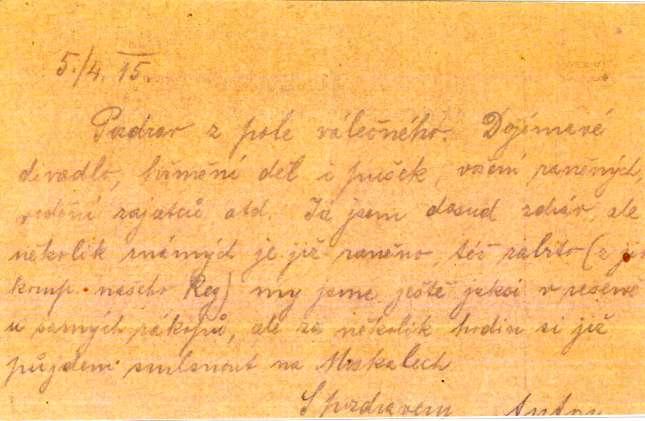 5./4. 15.
Pozdrav z pole válečného. Dojímavé
divadlo, hřmění děl i pušek, vození raněných,
vedení zajatců atd. Já jsem dosud zdráv, ale
několik známých je již raněno, též zabito (z
komp. našeho Reg) my jsme ještě jaksi v reservě
u samých zákopů, ale za několik hodin si již
půjdem smlsnout na Moskalech
S pozdravem Anton